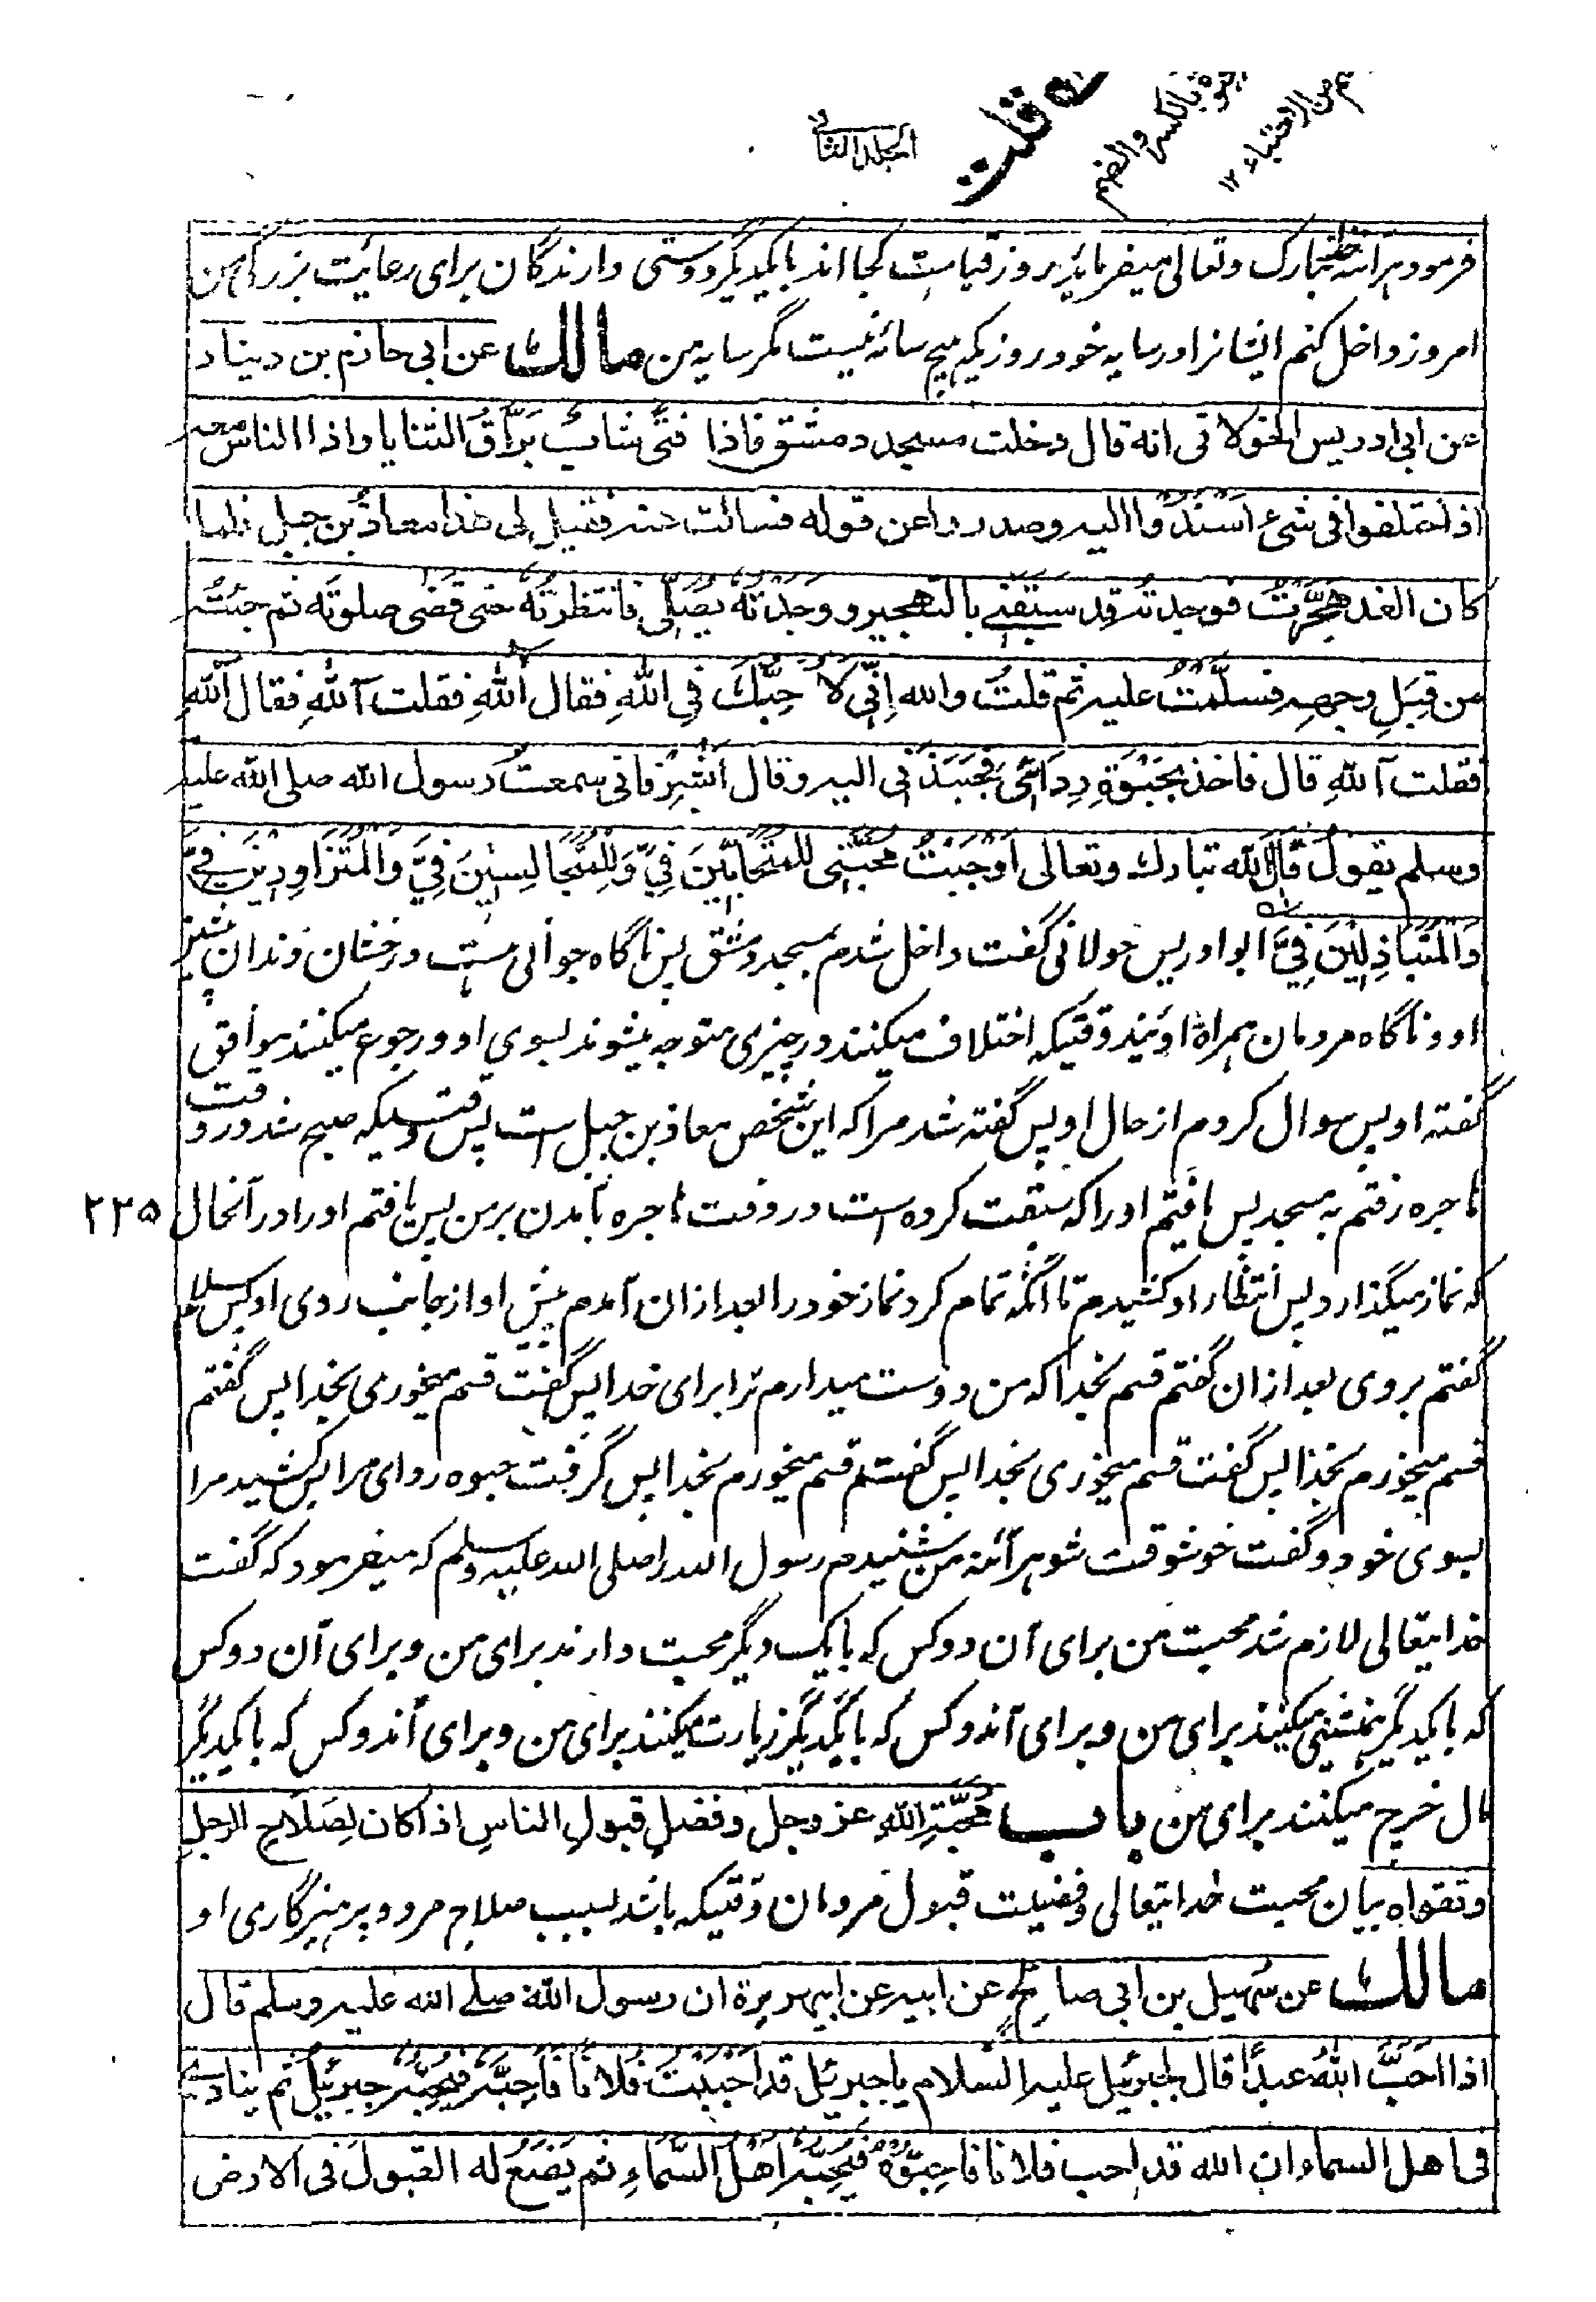 المجلد الثانی
قلت
بالکسر والضم
من الاحتباء ۱۲
فرمود هرآئنه خدا تبارک وتعالی میفرماید بروز قیامت کجا اند بایکدیگر دوستی دارندگان برای رعایت بزرگی من
امروز داخل کنم ایشانرا در سایه خود روزیکه هیچ سایه نیست مگر سایه من مالك عن ابی حازم بن دینار
عن ابی ادریس الخولانی انه قال دخلت مسجد دمشق فاذا فتًی شابٌ بَرَّاقُ الثنایا واذا الناس معه
اذا ختلفوا فی شیء اَسْنَدُوا الیه وصدروا عن قوله فسالت عنه فقیل لی هذا معاذُ بن جبل فلما
کان الغد هَجَّرْتُ فوجدته قد سَبَقَنِی بالتهجیر ووَجَدْتُهُ یُصَلِّی فانتظرتُهُ حتی قَضٰی صلوتَه ثم جئتُه
من قِبَلِ وجهِه فسلَّمتُ علیه ثم قلتُ والله اِنِّی لَاُحِبُّكَ فِی اللهِ فقال آللهِ فقلت آللهِ فقال آللهِ
فقلت آللهِ قال فاخذ بِحَبْوَةِ رِدَائِی فَجَبَذَنی الیه وقال اَبْشِرْ فانی سمعتُ رسول الله صلی الله علیه
وسلم یقول قَالَ الله تبارك وتعالی اَوْجَبْتُ مَحَبَّتِی للمتَحَابِّینَ فِیَّ وَلِلْمُتَجَالِسِیْنَ فِیَّ وَالْمُتَزَاوِرِیْنَ فِیَّ
وَالْمُتَبَاذِلِیْنَ فِیَّ ابو ادریس خولانی گفت داخل شدم بمسجد دمشق پس ناگاه جوانی ست درخشان دندان پیشین
او و ناگاه مردمان همراه او یند وقتیکه اختلاف میکنند در چیزی متوجه میشوند بسوی او ورجوع میکنند موافق
گفته او پس سوال کردم از حال او پس گفته شد مرا که این شخص معاذ بن جبل است پس وقتیکه صبح شد در وقت
هاجره رفتم به مسجد پس یافتم او را که سبقت کرده است در وقت هاجره بآمدن بر من پس یافتم اورا در آنحال
۲۲۵
که نماز میگذارد پس انتظار او کشیدم تا آنکه تمام کرد نماز خود را بعد ازان آمدم پیش او از جانب روی او پس سلام
گفتم بروی بعد ازان گفتم قسم بخدا که من دوست میدارم ترا برای خدا پس گفت قسم میخوری بخدا پس گفتم
قسم میخورم بخدا پس گفت قسم میخوری بخدا پس گفتم قسم میخورم بخدا پس گرفت حبوه ردای مرا پس کشید مرا
بسوی خود و گفت خوشوقت شو هرآئنه من شنیدم رسول الله را صلی الله علیه وسلم که میفرمود که گفت
خدایتعالی لازم شد محبت من برای آن دوکس که بایک دیگر محبت دارند برای من وبرای آن دوکس
که بایکدیگر همنشینی میکنند برای من وبرای آندوکس که بایکدیگر زیارت میکنند برای من وبرای آندوکس که بایکدیگر
مال خرج میکنند برای من باب مَحَبَّةِ اللهِ عز وجل وفضلِ قبولِ الناسِ اذا کان لِصَلَاحِ الرجلِ
وتقواه بیان محبت خدایتعالی وفضیلت قبول مردمان وقتیکه باشد بسبب صلاح مرد و پرهیزگاری او
مالك عن سُهَیل بن ابی صالحٍ عن ابیه عن ابیهریرة ان رسول الله صلی الله علیه وسلم قال
اذا اَحَبَّ اللهُ عبدًا قال لجبرئیل علیه السلام یا جبرئیل قد اَحْبَبْتُ فُلانًا فَاَحِبَّه فَیُحِبُّه جبرئیلُ ثم ینادی
فی اهل السماء ان الله قد احب فلانا فاَحِبُّوْهُ فَیُحِبُّه اَهْلُ السَّمَاءِ ثم یَضَعُ له القبولَ فی الارض